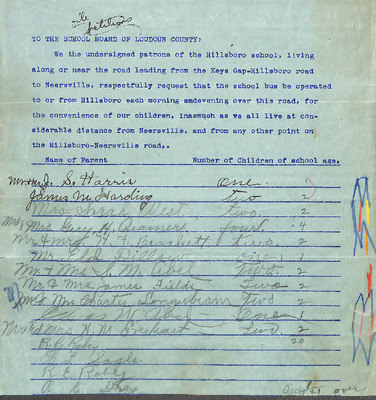 petitions
TO THE SCHOOL BOARD OF LOUDOUN COUNTY:
We the undersigned patrons of the Hillsboro school, living
along or near the road leading from the Keys Gap-Hillsboro road
to Neersville, respectfully request that the school bus be operated
to or from Hillsboro each morning amdevening over this road, for
the convenience of our children, inasmuch as we all live at con-
siderable distance from Neersville, and from any other point on
the Hillsboro-Neersville road,.
Name of Parent Number of Children of school age.
S. Harris One 1
James M. Harding two 2
Mrs. Sarah West two. 2
Mrs Guy H. Beamer four 4
Mr & Mrs H. F. two 2
Mr. 1
Mr. & Mrs. S. M. Abel Two 2
Mr & Mrs James Fields Two 2
Mr & Mrs Longerbeam Two 2
W. Abel One 1
Mrs H. M. Everhart Two. 2
20
R. E. Robey
over